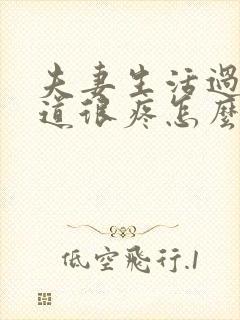 夫妻生活過
道很疼怎麼
低空飛行.1